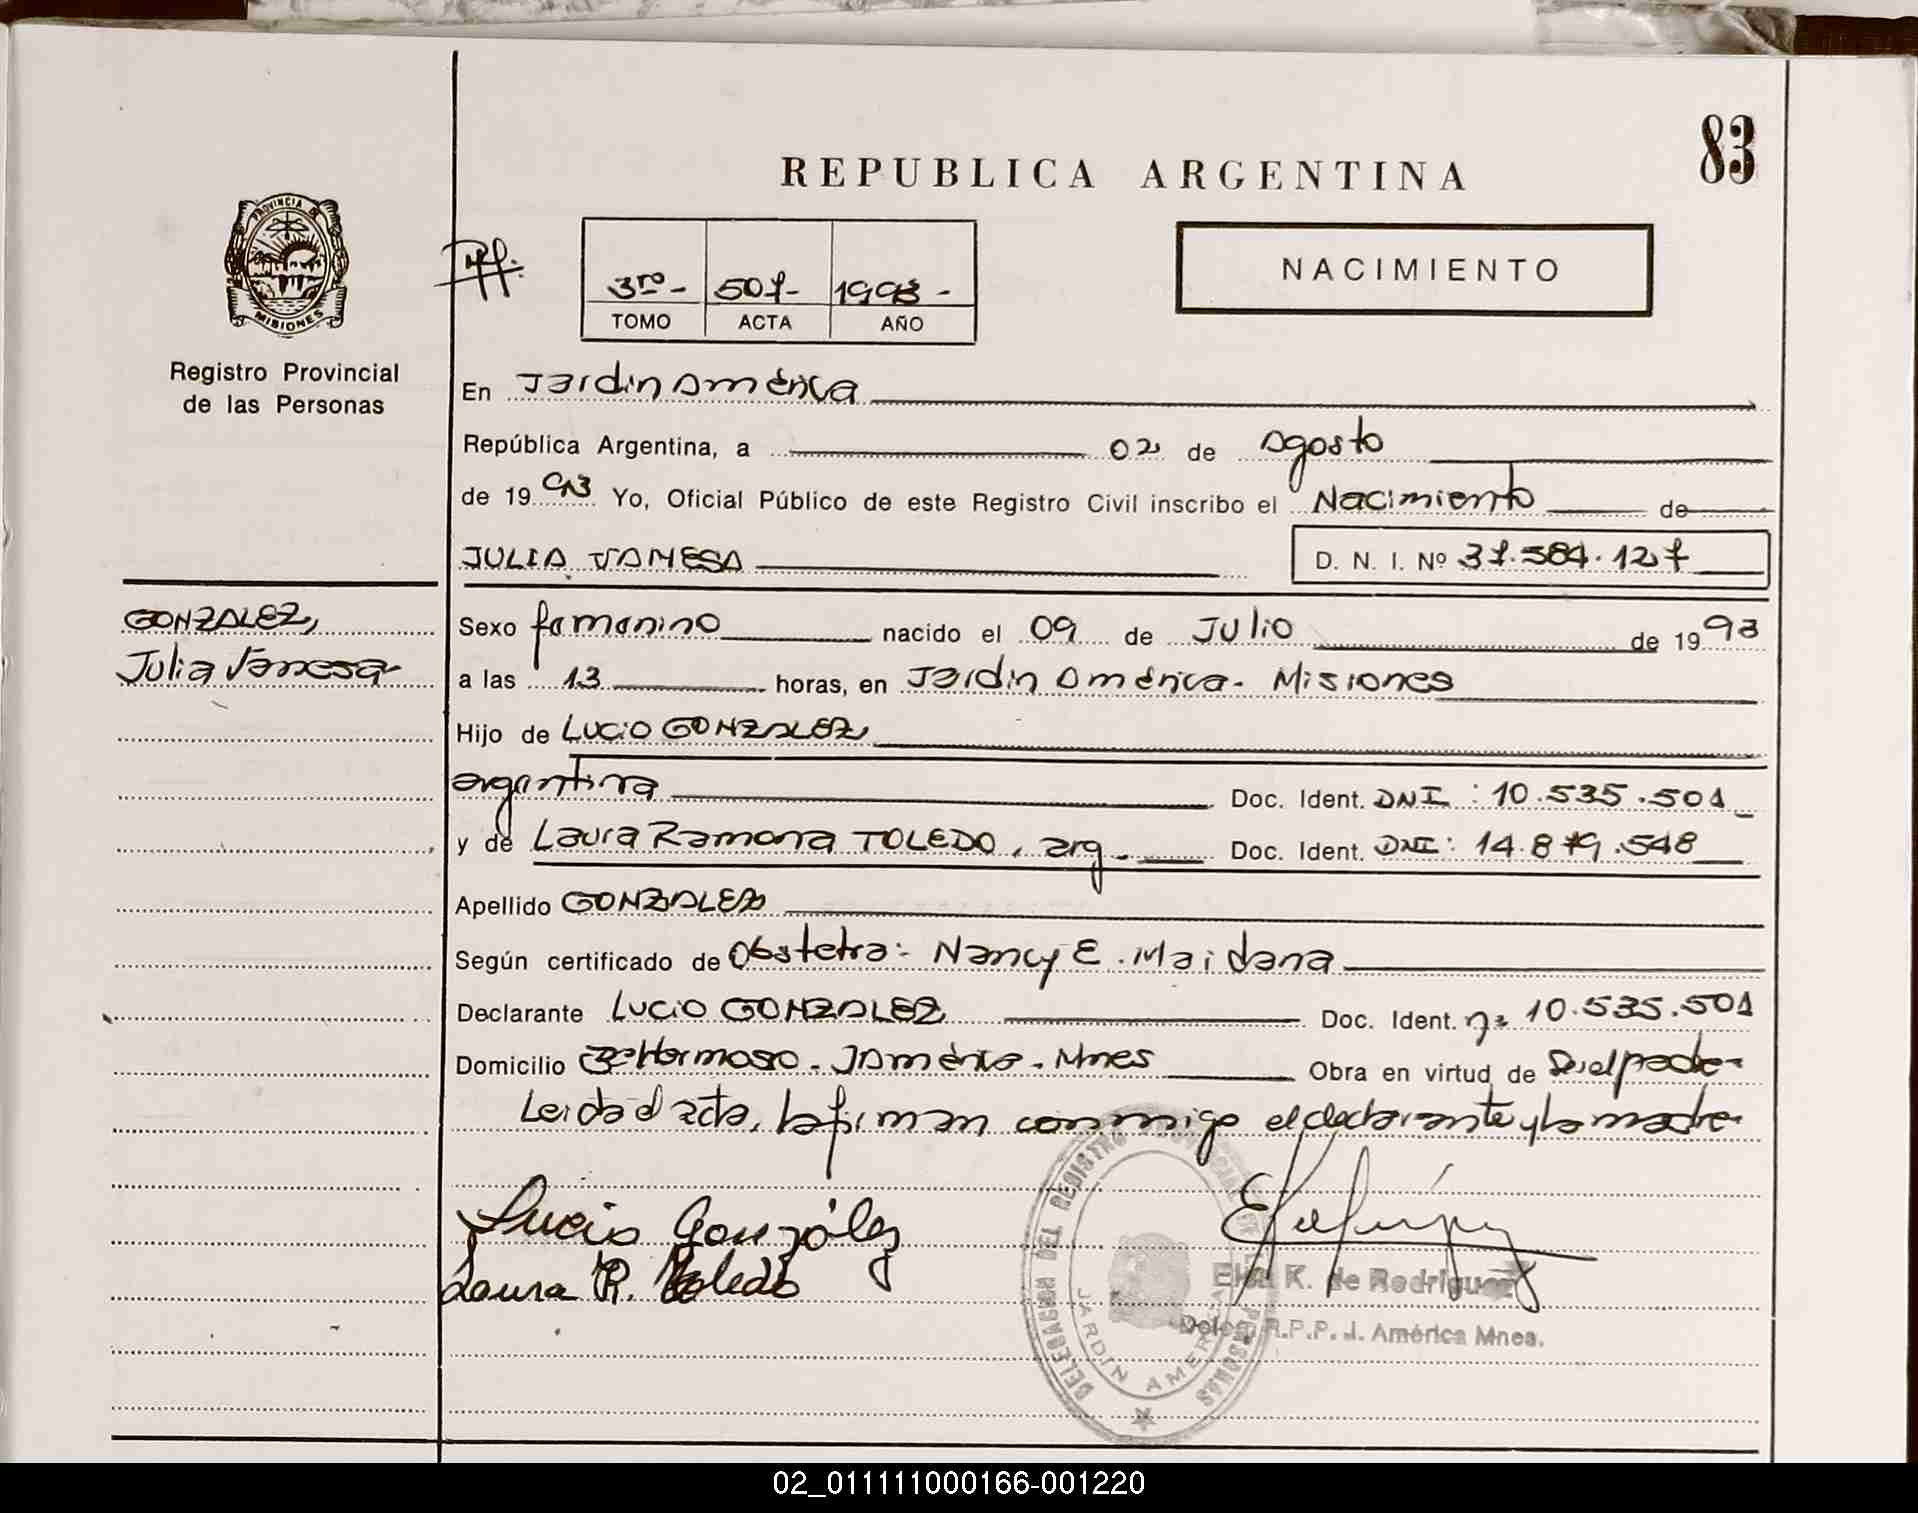 83
REPUBLICA ARGENTINA
PROVINCIA DE
MISIONES
Registro Provincial
de las Personas
3ro - 507- 1993 -
TOMO ACTA AÑO
NACIMIENTO
En Jardin América
República Argentina, a 02 de Agosto
de 1993 Yo, Oficial Público de este Registro Civil inscribo el Nacimiento de
JULIA VANESA D. N. I. Nº 37.584.127
GONZALEZ,
Julia Vanesa
Sexo femenino nacido el 09 de Julio de 1993
a las 13 horas, en Jardin América - Misiones
Hijo de Lucio GONZALEZ
argentina Doc. Ident. DNI : 10.535.501
y de Laura Ramona TOLEDO, arg. Doc. Ident. DNI : 14.879.548
Apellido GONZALEZ
Según certificado de Obstetra: Nancy E. Maidana
Declarante Lucio GONZALEZ Doc. Ident. nº 10.535.501
Domicilio Bº Hermoso - J América - Mnes Obra en virtud de Ser el padre
Leida el acta, la firman conmigo el declarante y la madre
Lucio González
Laura R. Toledo
DELEGACION DEL REGISTRO PROVINCIAL DE LAS PERSONAS
JARDIN AMERICA
K. de Rodriguez
Deleg. R.P.P. J. América Mnes.
02_011111000166-001220